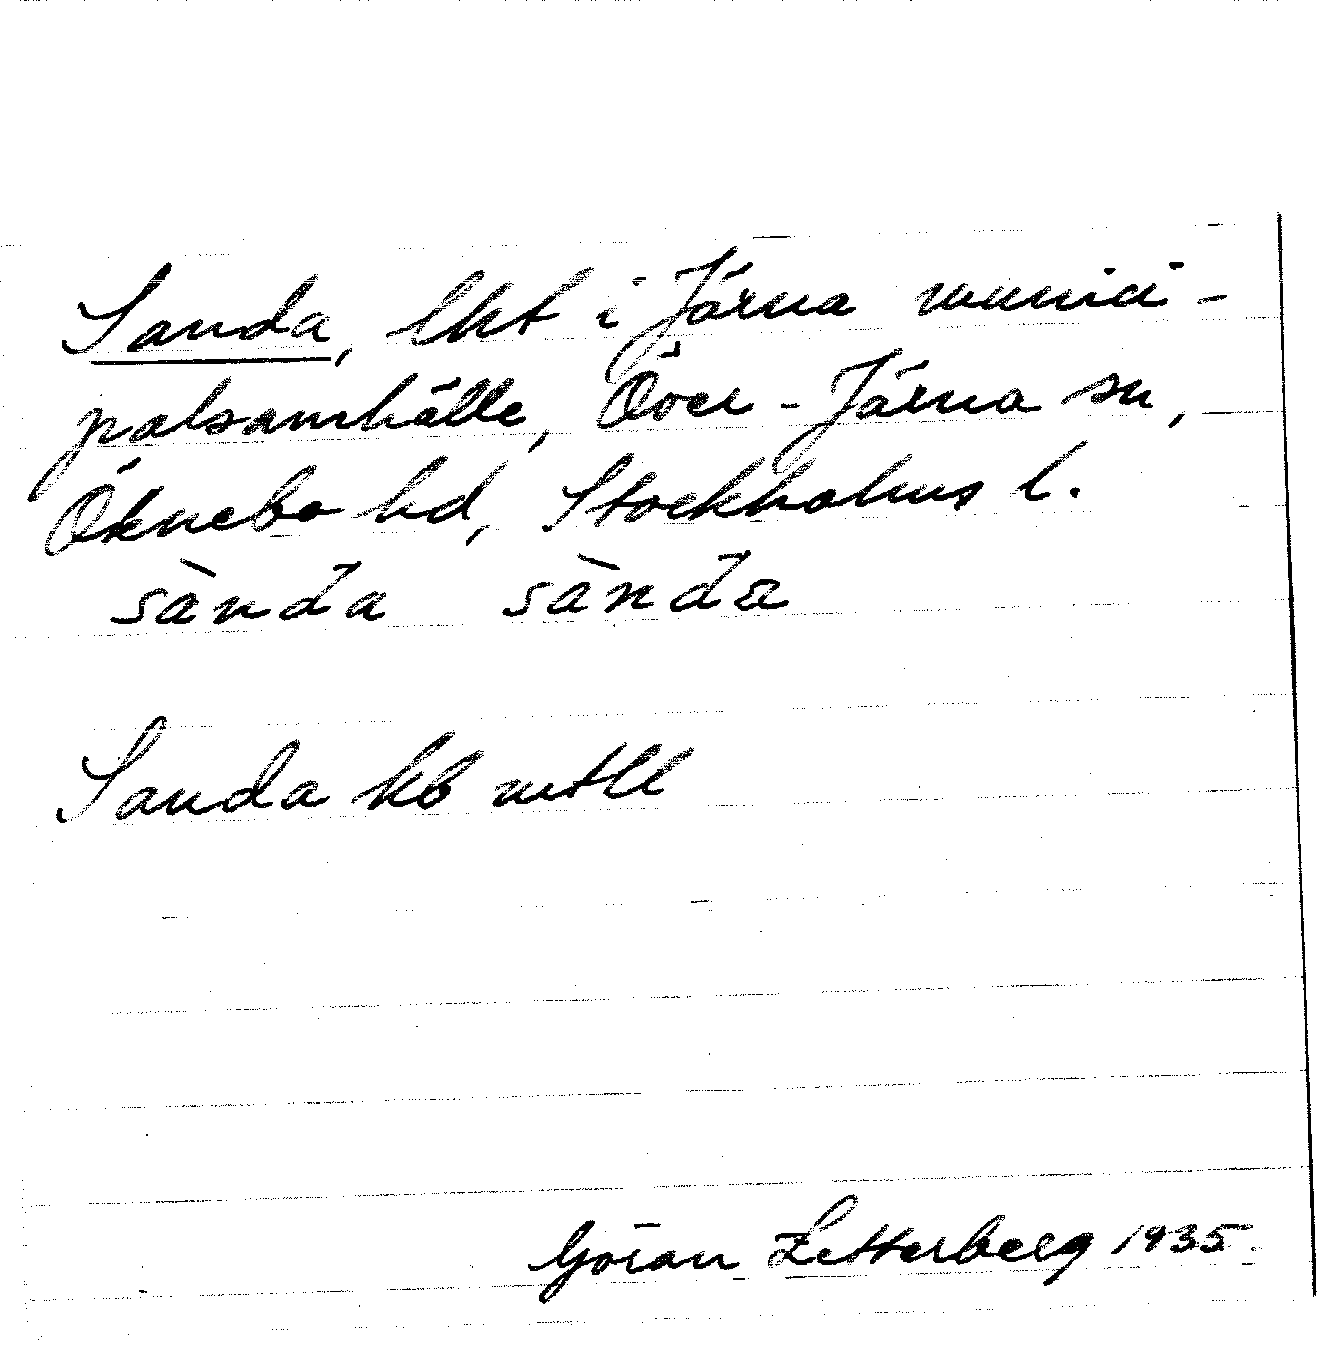 Sanda, lht i Järna munici-
palsamhälle, Över-Järna sn,
Öknebo hd, Stockholms l.
sànda sànda
Sanda kb mtll
Göran Zetterberg 1935.